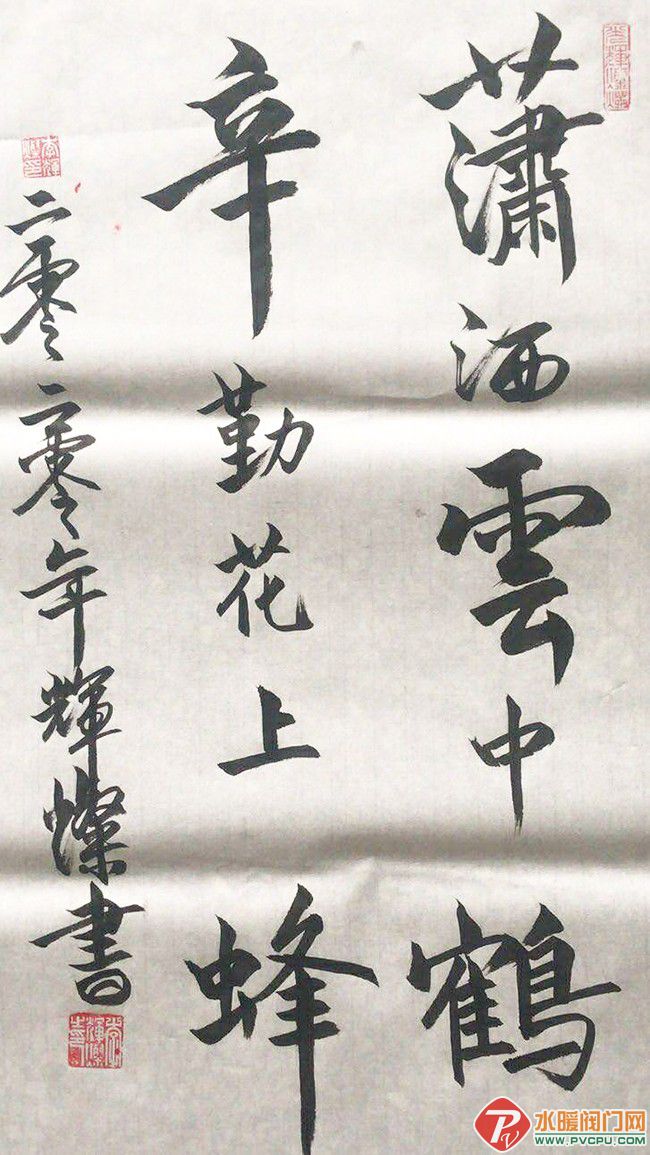 瀟洒雲中鶴
辛勤花上蜂
二零二零年輝燦書
水暖阀门网
WWW.PVCPU.COM